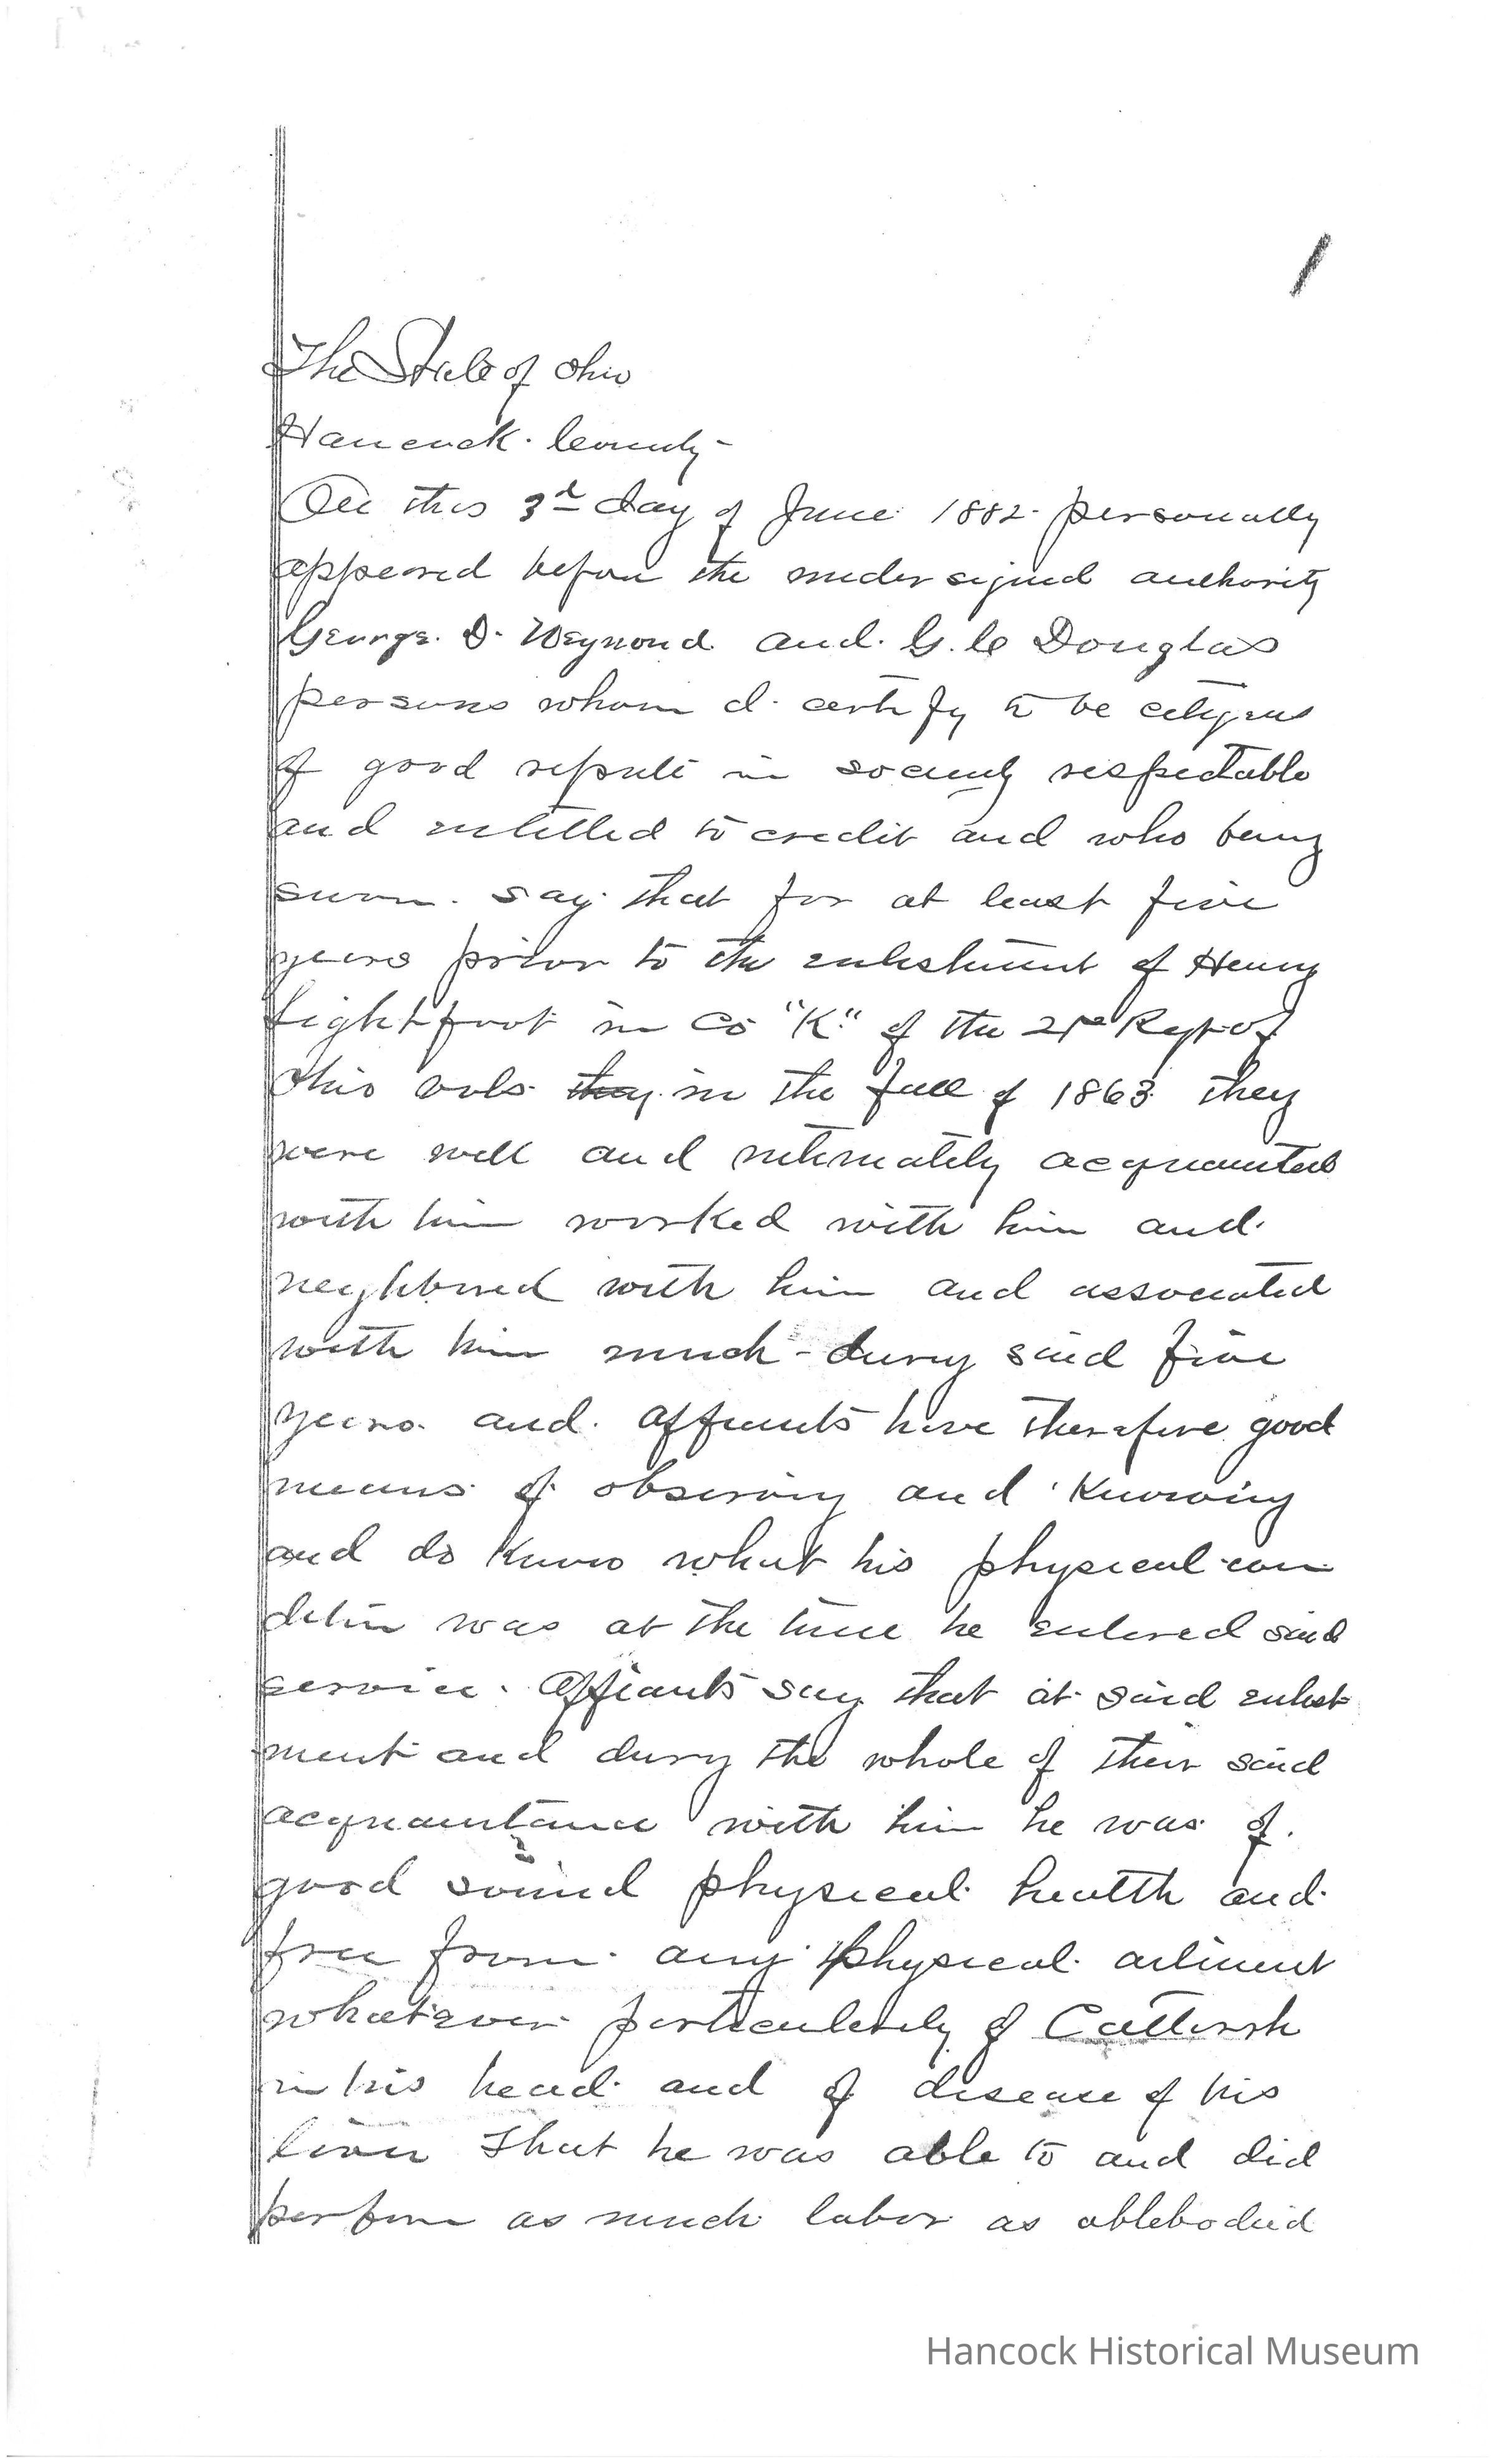 The State of Ohio
Hancock County -
On this 3d day of June 1882 personally
appeared before the undersigned authority
George D. Weymond and G. C Douglas
persons whom I certify to be citizens
of good repute in society respectable
and entitled to credit and who being
sworn say that for at least five
years prior to the enlistment of Henry
Lightfoot in Co "K" of the 21st Regt of
Ohio vols they in the fall of 1863 they
were well and intimately acquainted
with him worked with him and
neighbored with him and associated
with him much - during said five
years and affiants have therefore good
means of observing and knowing
and do know what his physical con
dition was at the time he entered said
service. Affiants say that at said enlist
ment and during the whole of their said
acquaintance with him he was of
good sound physical health and
free from any physical ailment
whatever particularly of Catterrh
in his head and of disease of his
liver That he was able to and did
perform as much labor as ablebodied
Hancock Historical Museum